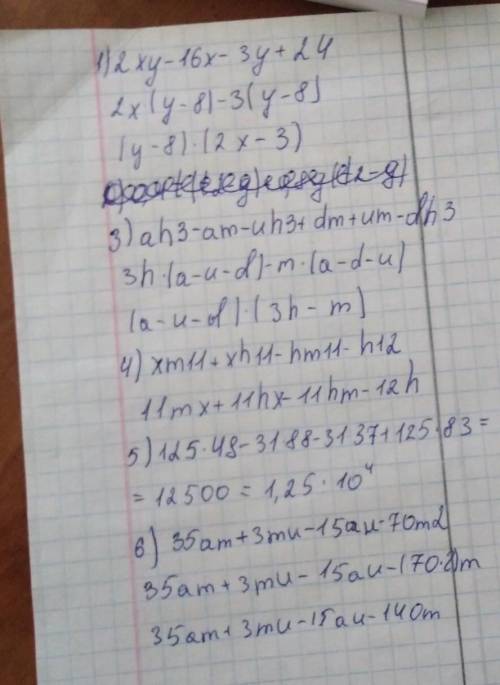 1) 2xy-16x-3y+24
2x(y-8)-3(y-8)
(y-8)·(2x-3)
3) ah3-am-uh3+dm+um-dh3
3h·(a-u-d)-m·(a-d-u)
(a-u-d)·(3h-m)
4) xm11+xh11-hm11-h12
11mx+11hx-11hm-12h
5) 125·48-31·88-31·37+125·83=
=12500=1,25·10⁴
6) 35am+3mu-15au-70m2
35am+3mu-15au-(70·2)m
35am+3mu-15au-140m